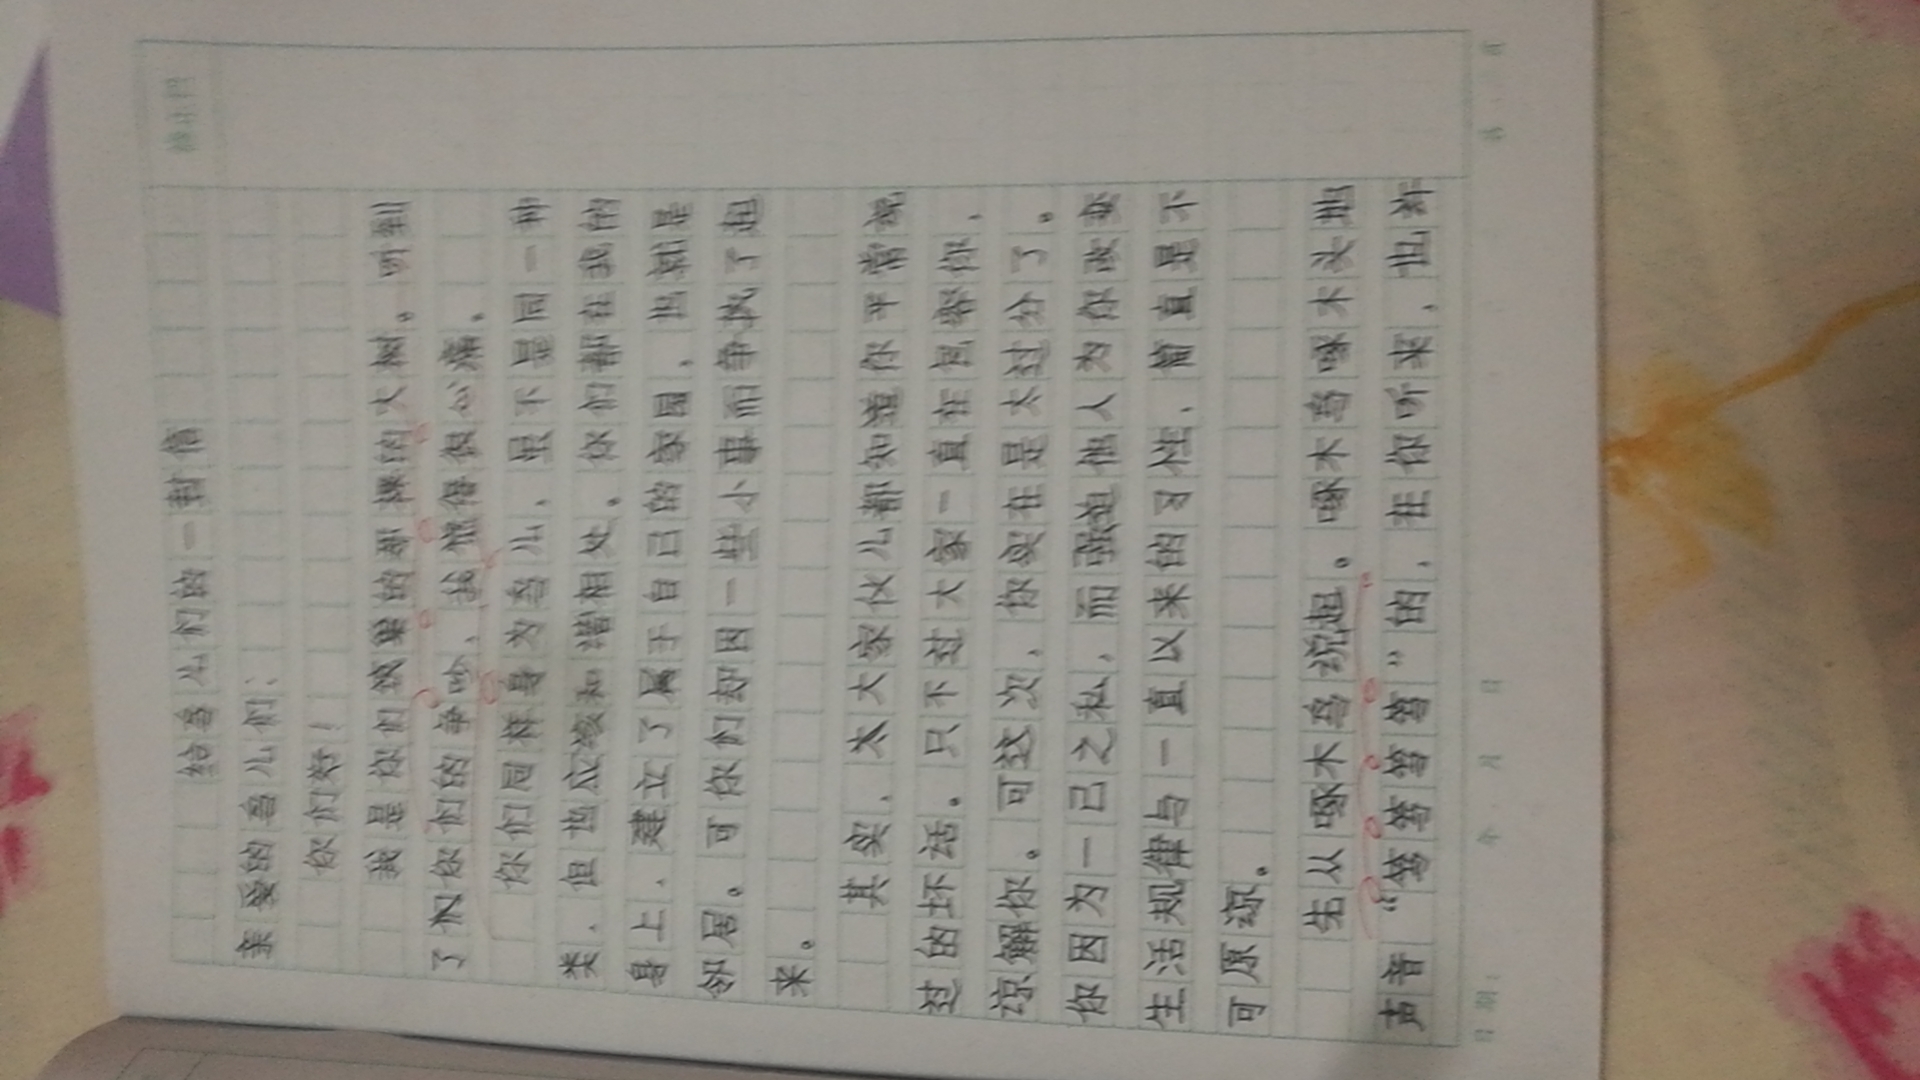 给鸟儿们的一封信
亲爱的鸟儿们：
你们好！
我是你们筑巢的那棵的大树。听到
了你们的争吵，我憋得很心痛。
你们同样身为鸟儿，虽不是同一种
类，但也应该和谐相处。你们都在我的
身上，建立了属于自己的家园，也就是
邻居。可你们却因一些小事而争执了起
来。
其实，太大家伙儿都知道你平常说
过的坏话。只不过大家一直在包容你，
谅解你。可这次，你实在是太过分了。
你因为一己之私，而强迫他人为你改变
生活规律与一直以来的习性，简直是不
可原谅。
先从啄木鸟说起。啄木鸟啄木头地
声音“笃笃笃笃”的，在你听来，
修正栏
日期：
年
月
日